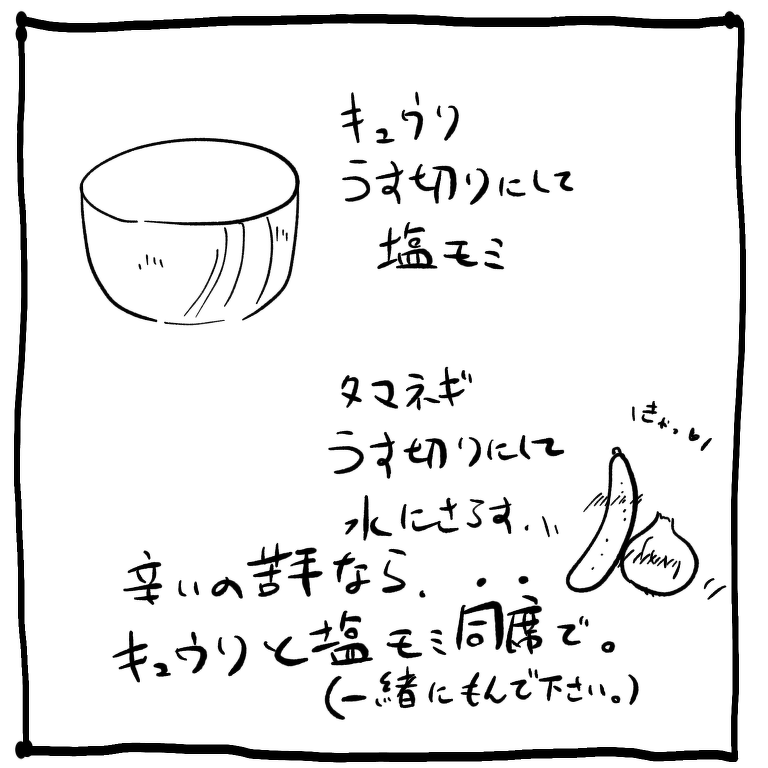 キュウリ
うす切りにして
塩モミ
タマネギ
うす切りにして
水にさらす..、、
きゃっ
辛いの苦手なら、
キュウリと塩モミ同席で。
(一緒にもんで下さい。)